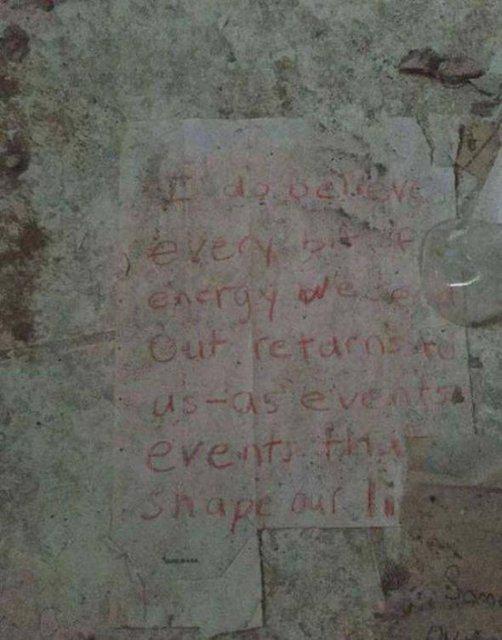 I do believe
every bit of
energy we send
Out returns to
us-as events
events that
shape our li
Sam